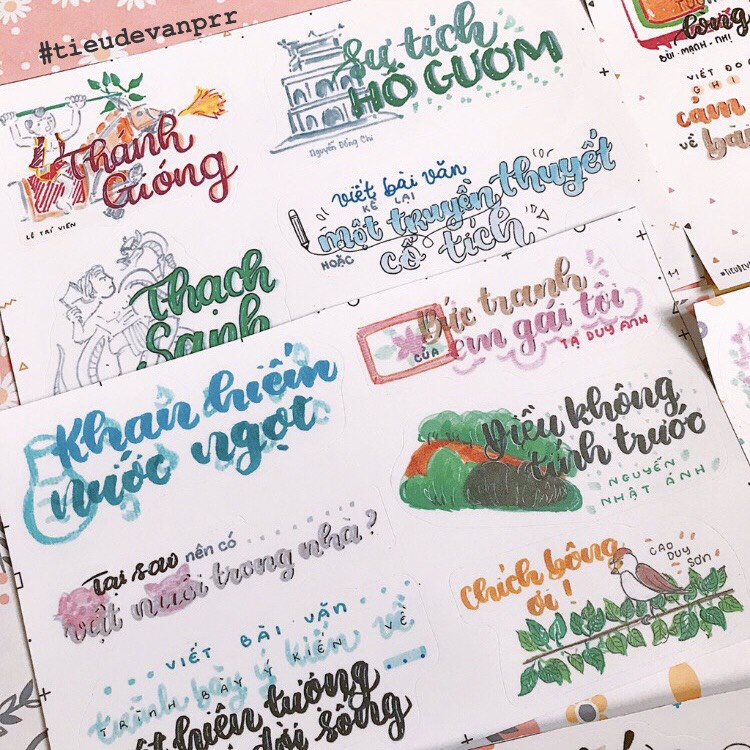 #tieudevanprr
Thánh
Gióng
LÊ TRÍ VIỄN
Sự tích
HỒ GƯƠM
Nguyễn Đổng Chi
viết bài văn
KỂ LẠI
một truyền thuyết
HOẶC cổ tích
Thạch
Sanh
BÙI-MẠNH-NHỊ
VIẾT ĐO
GHI
cảm
VỀ bài
Bức tranh
CỦA em gái tôi
TẠ DUY ANH
Khan hiếm
nước ngọt
Điều không
tính trước
NGUYỄN
NHẬT ÁNH
Tại sao nên có
vật nuôi trong nhà?
chích bông
ơi!
CAO DUY
SƠN
VIẾT BÀI VĂN
trình bày ý kiến về
TRÌNH BÀY Ý KIẾN VỀ
hiện tượng
đời sống